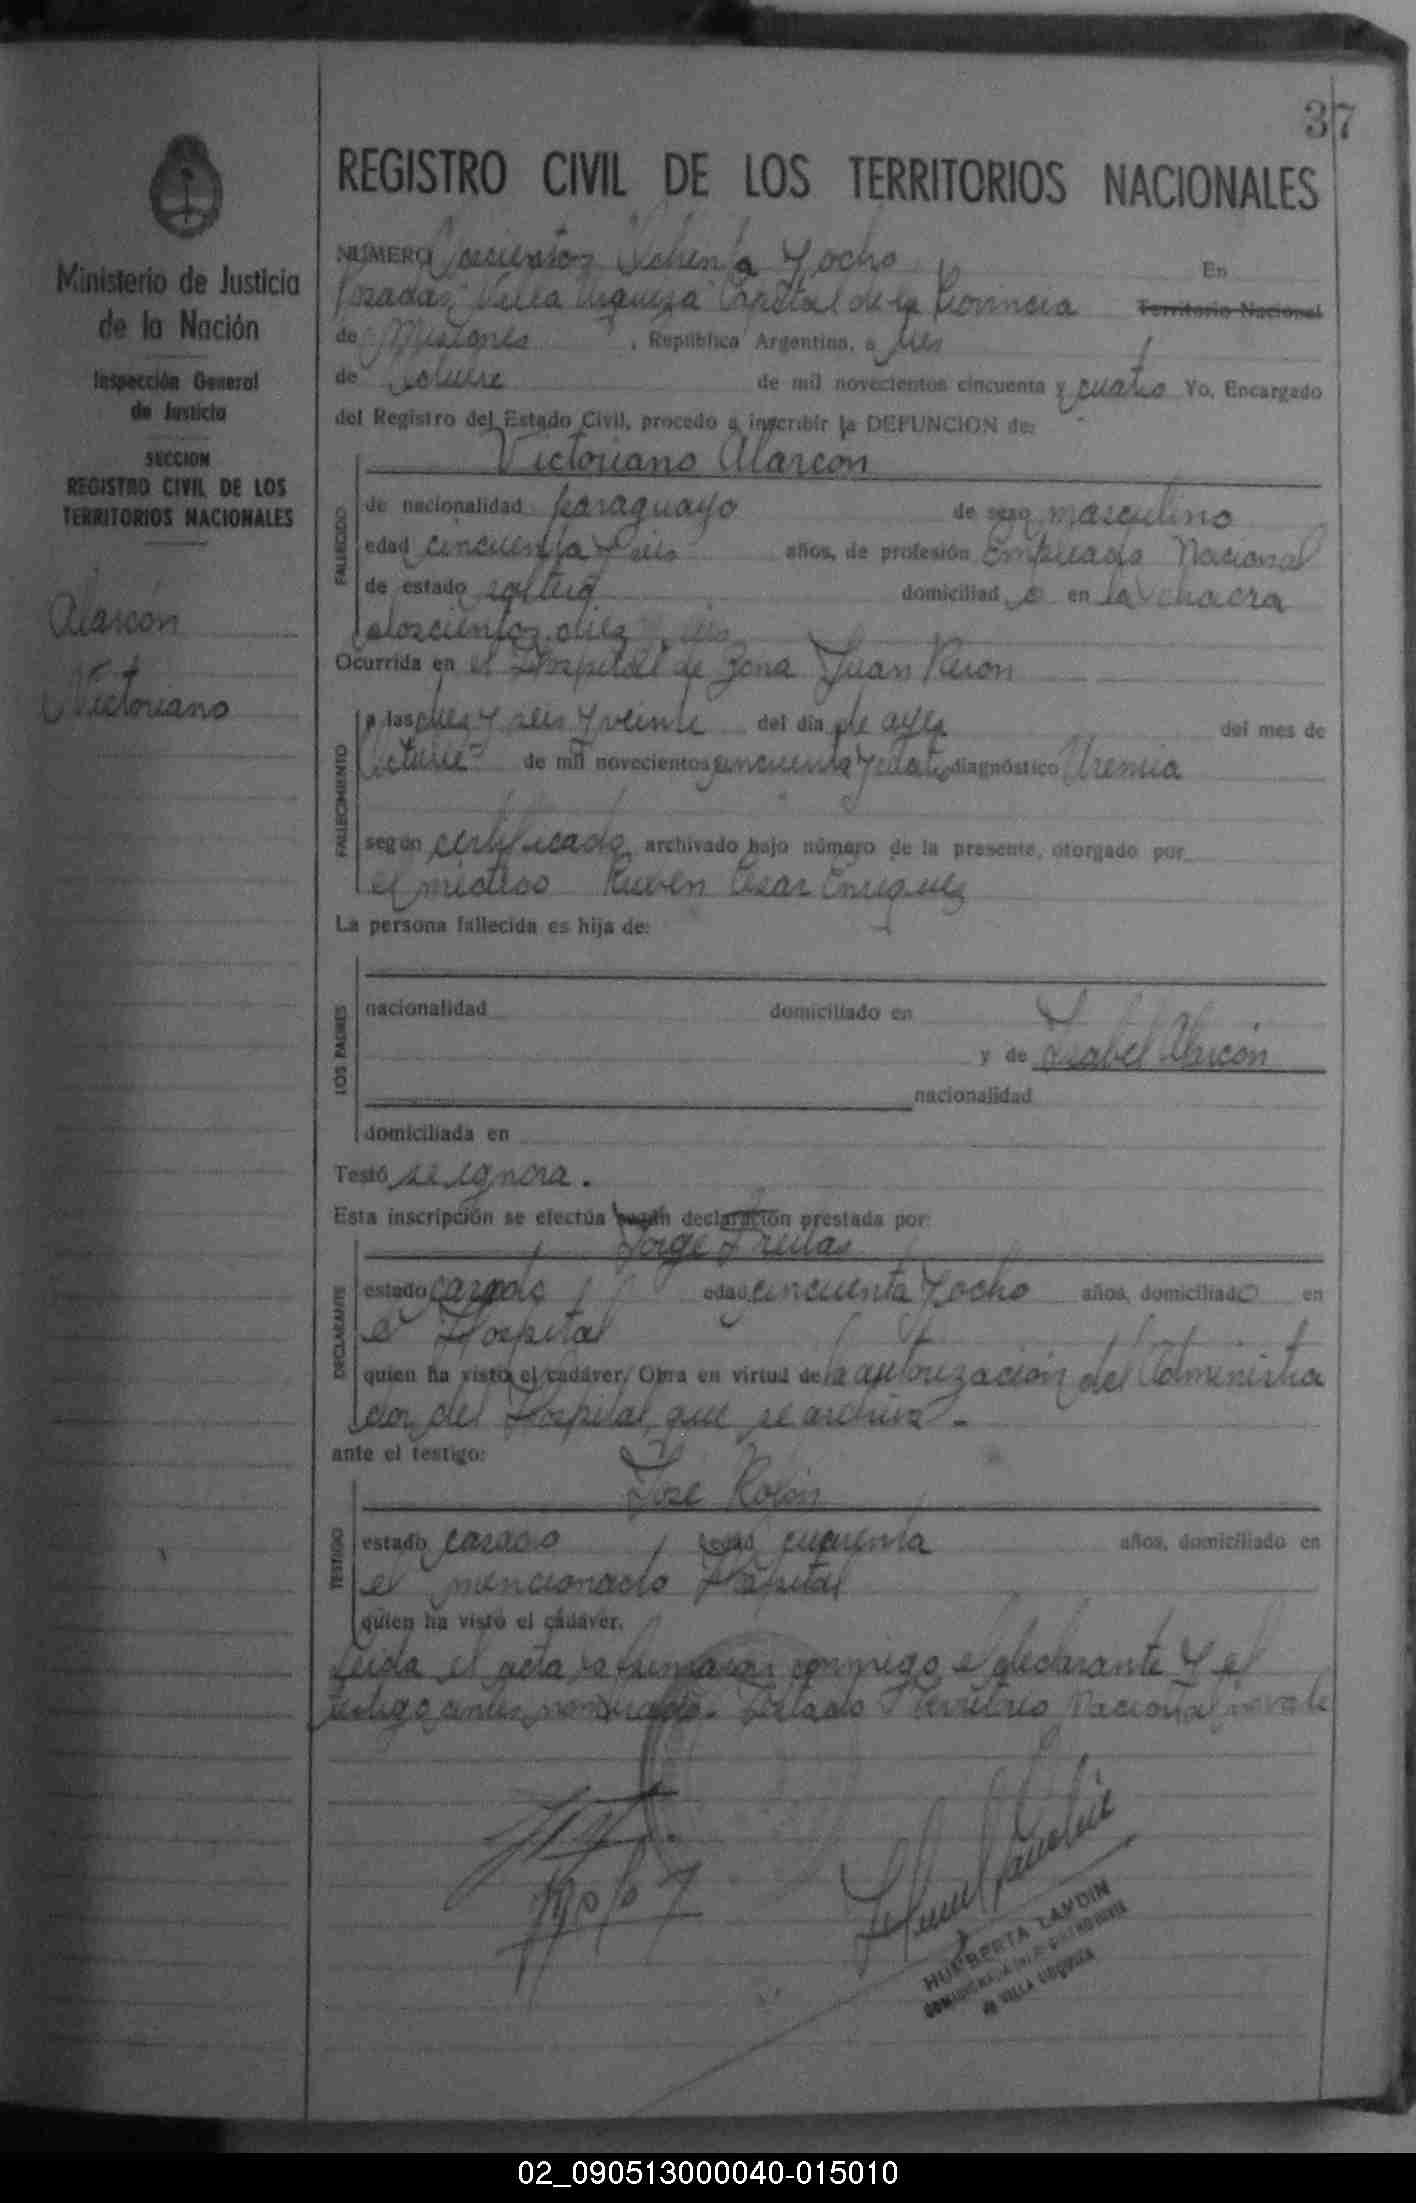 37
REGISTRO CIVIL DE LOS TERRITORIOS NACIONALES
Ministerio de Justicia
de la Nación
Inspección General
de Justicia
SECCION
REGISTRO CIVIL DE LOS
TERRITORIOS NACIONALES
Alarcón
Victoriano
NUMERO Doscientos Ochenta y ocho En
Posadas "Villa Urquiza" Capital de la Provincia Territorio Nacional
de Misiones, República Argentina, a tres
de Octubre de mil novecientos cincuenta y cuatro Yo, Encargado
del Registro del Estado Civil, procedo a inscribir la DEFUNCION de:
Victoriano Alarcón
FALLECIDO
de nacionalidad paraguayo de sexo masculino
edad cincuenta y seis años, de profesión Empleado Nacional
de estado soltero domiciliado en la chacra
doscientos diez
Ocurrida en el Hospital de Zona Juan Perón
FALLECIMIENTO
a las diez y seis y veinte del día de ayer del mes de
Octubre de mil novecientos cincuenta y cuatro diagnóstico Uremia
según certificado archivado bajo número de la presente, otorgado por
el médico Rubén César Enriquez
La persona fallecida es hija de:
LOS PADRES
nacionalidad domiciliado en
y de Isabel Alarcón
nacionalidad
domiciliada en
Testó se ignora.
Esta inscripción se efectúa según declaración prestada por:
Jorge Freitas
DECLARANTE
estado casado edad cincuenta y ocho años, domiciliado en
el Hospital
quien ha visto el cadáver. Obra en virtud de la autorización del Administra
dor del Hospital, que se archiva.-
ante el testigo:
José Rolón
TESTIGO
estado casado edad cuarenta años, domiciliado en
el mencionado Hospital
quien ha visto el cadáver.
Leída el acta la firmaron conmigo el declarante y el
testigo antes nombrados. Testado Territorio Nacional no vale
HUMBERTA LANDIN
de VILLA URQUIZA
02_090513000040-015010